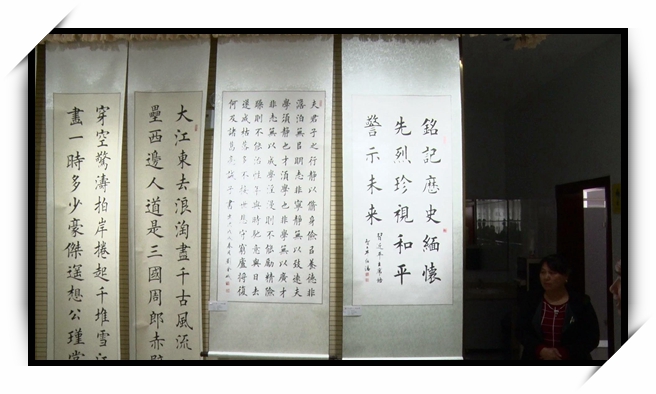 銘記歷史緬懷
先烈珍視和平
警示未来
夫君子之行靜以脩身儉以養德非
澹泊無以明志非寧靜無以致遠夫
學須靜也才須學也非學無以廣才
非志無以成學淫漫則不能勵精險
躁則不能治性年與時馳意與日去
遂成枯落多不接世悲守窮廬将復
何及諸葛亮誡子書
大江東去浪淘盡千古風流
壘西邊人道是三國周郎赤壁
穿空驚濤拍岸捲起千堆雪江
畫一時多少豪傑遥想公瑾當